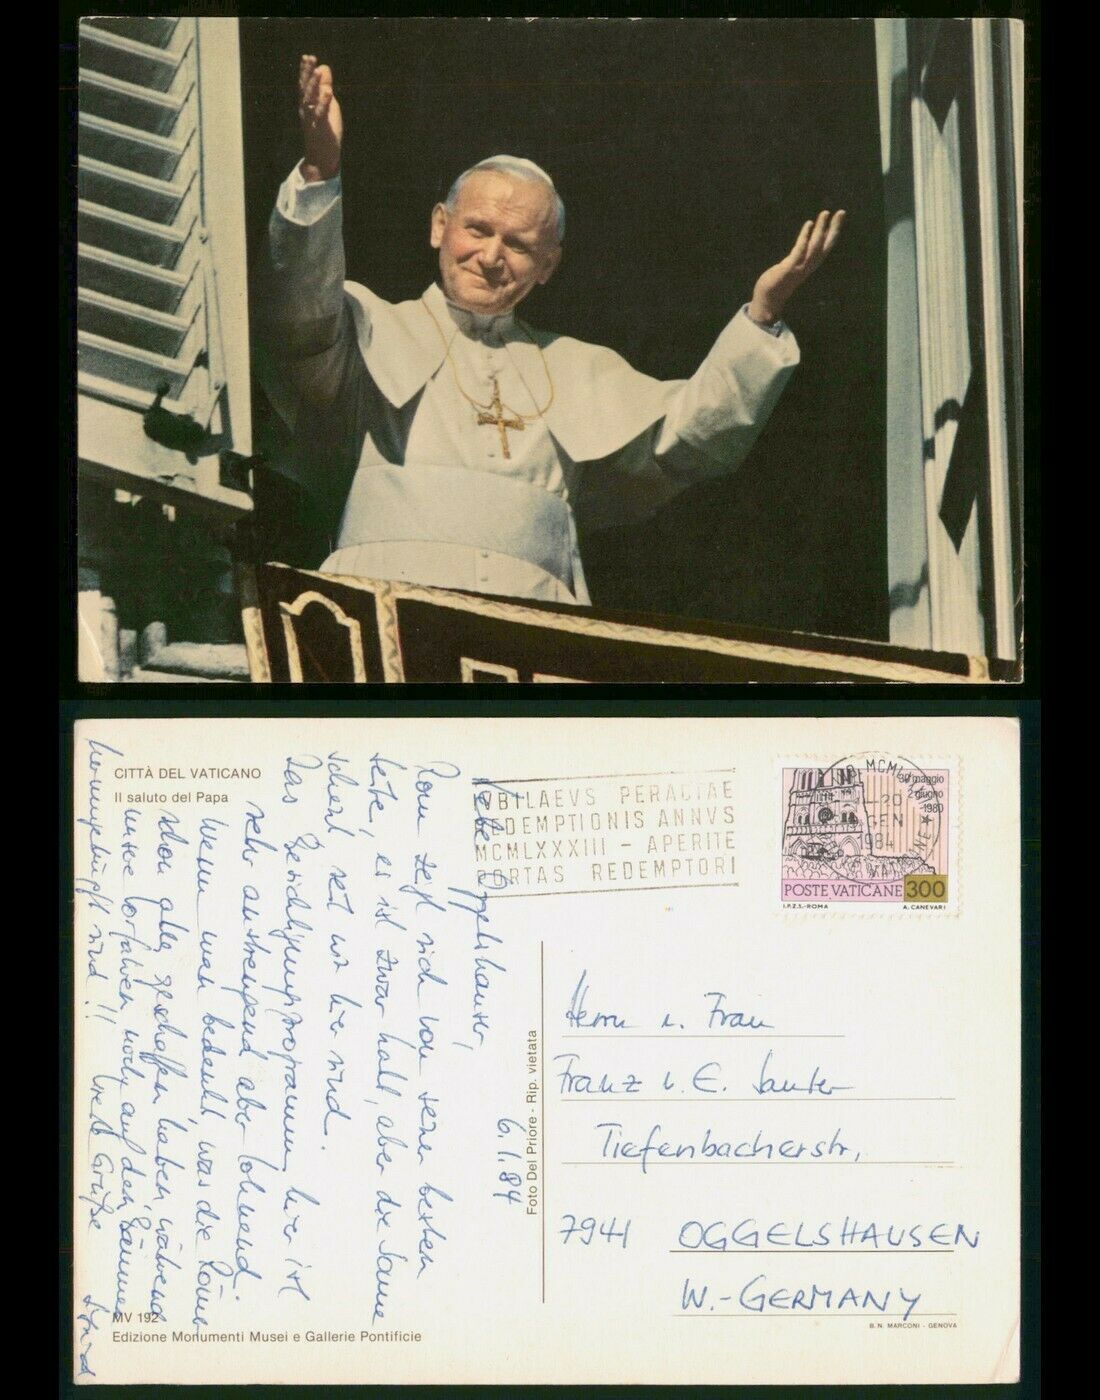 CITTÀ DEL VATICANO
Il saluto del Papa
IVBILAEVS PERACTAE
REDEMPTIONIS ANNVS
MCMLXXXIII - APERITE
PORTAS REDEMPTORI
30 maggio
2 giugno
1980
-20
GEN
1984
POSTE VATICANE 300
I.P.Z.S.-ROMA A. CANEVARI
6.1.84
Liebe Oggelshauser,
Rom zeigt sich von seiner besten
Seite, es ist zwar kalt, aber die Sonne
scheint, seit wir hier sind.
Das Besichtigungsprogramm hier ist
sehr anstrengend aber lohnend.
Wenn man bedenkt, was die Römer
schon alles geschaffen haben, während
unsere Vorfahren noch auf den Bäumen
herumgehüpft sind!! Grüße
Foto Del Priore - Rip. vietata
Herrn u. Frau
Franz u. E. Sauter
Tiefenbacherstr.
7941 OGGELSHAUSEN
W.-GERMANY
B.N. MARCONI - GENOVA
MV 192
Edizione Monumenti Musei e Gallerie Pontificie